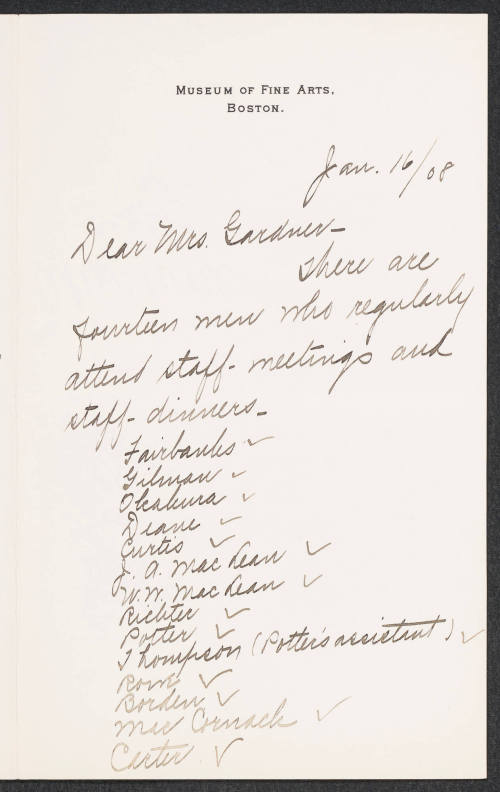 MUSEUM OF FINE ARTS,
BOSTON.
Jan. 16/08
Dear Mrs. Gardner–
There are
fourteen men who regularly
attend staff-meetings and
staff-dinners–
Fairbanks ✓
Gilman ✓
Okakura ✓
Deane ✓
Curtis ✓
J. A. MacLean ✓
W. W. MacLean ✓
Richter ✓
Potter ✓
Thompson (Potter's assistant) ✓
Rowe ✓
Borden ✓
Mac Cornack ✓
Carter ✓